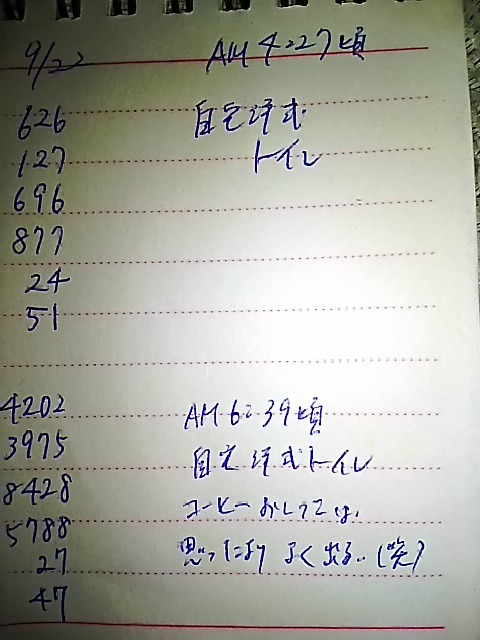 9/22 AM 4:27頃
626 自宅洋式
127 トイレ
696
877
24
51
4202 AM 6:39頃
3975 自宅洋式トイレ
8428 コーヒーおしっこは、
5788 思ったよりよく出る..(笑)
27
47